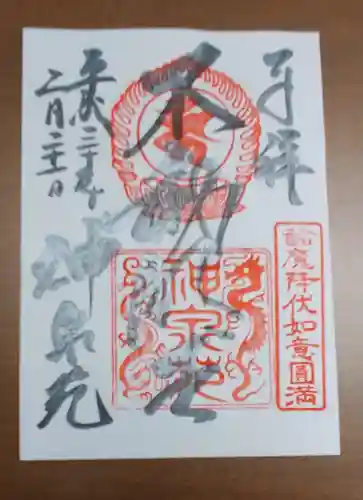 奉拝
諸魔降伏如意圓満
不動明王
神泉苑
平成三十年
二月二十二日
神泉苑